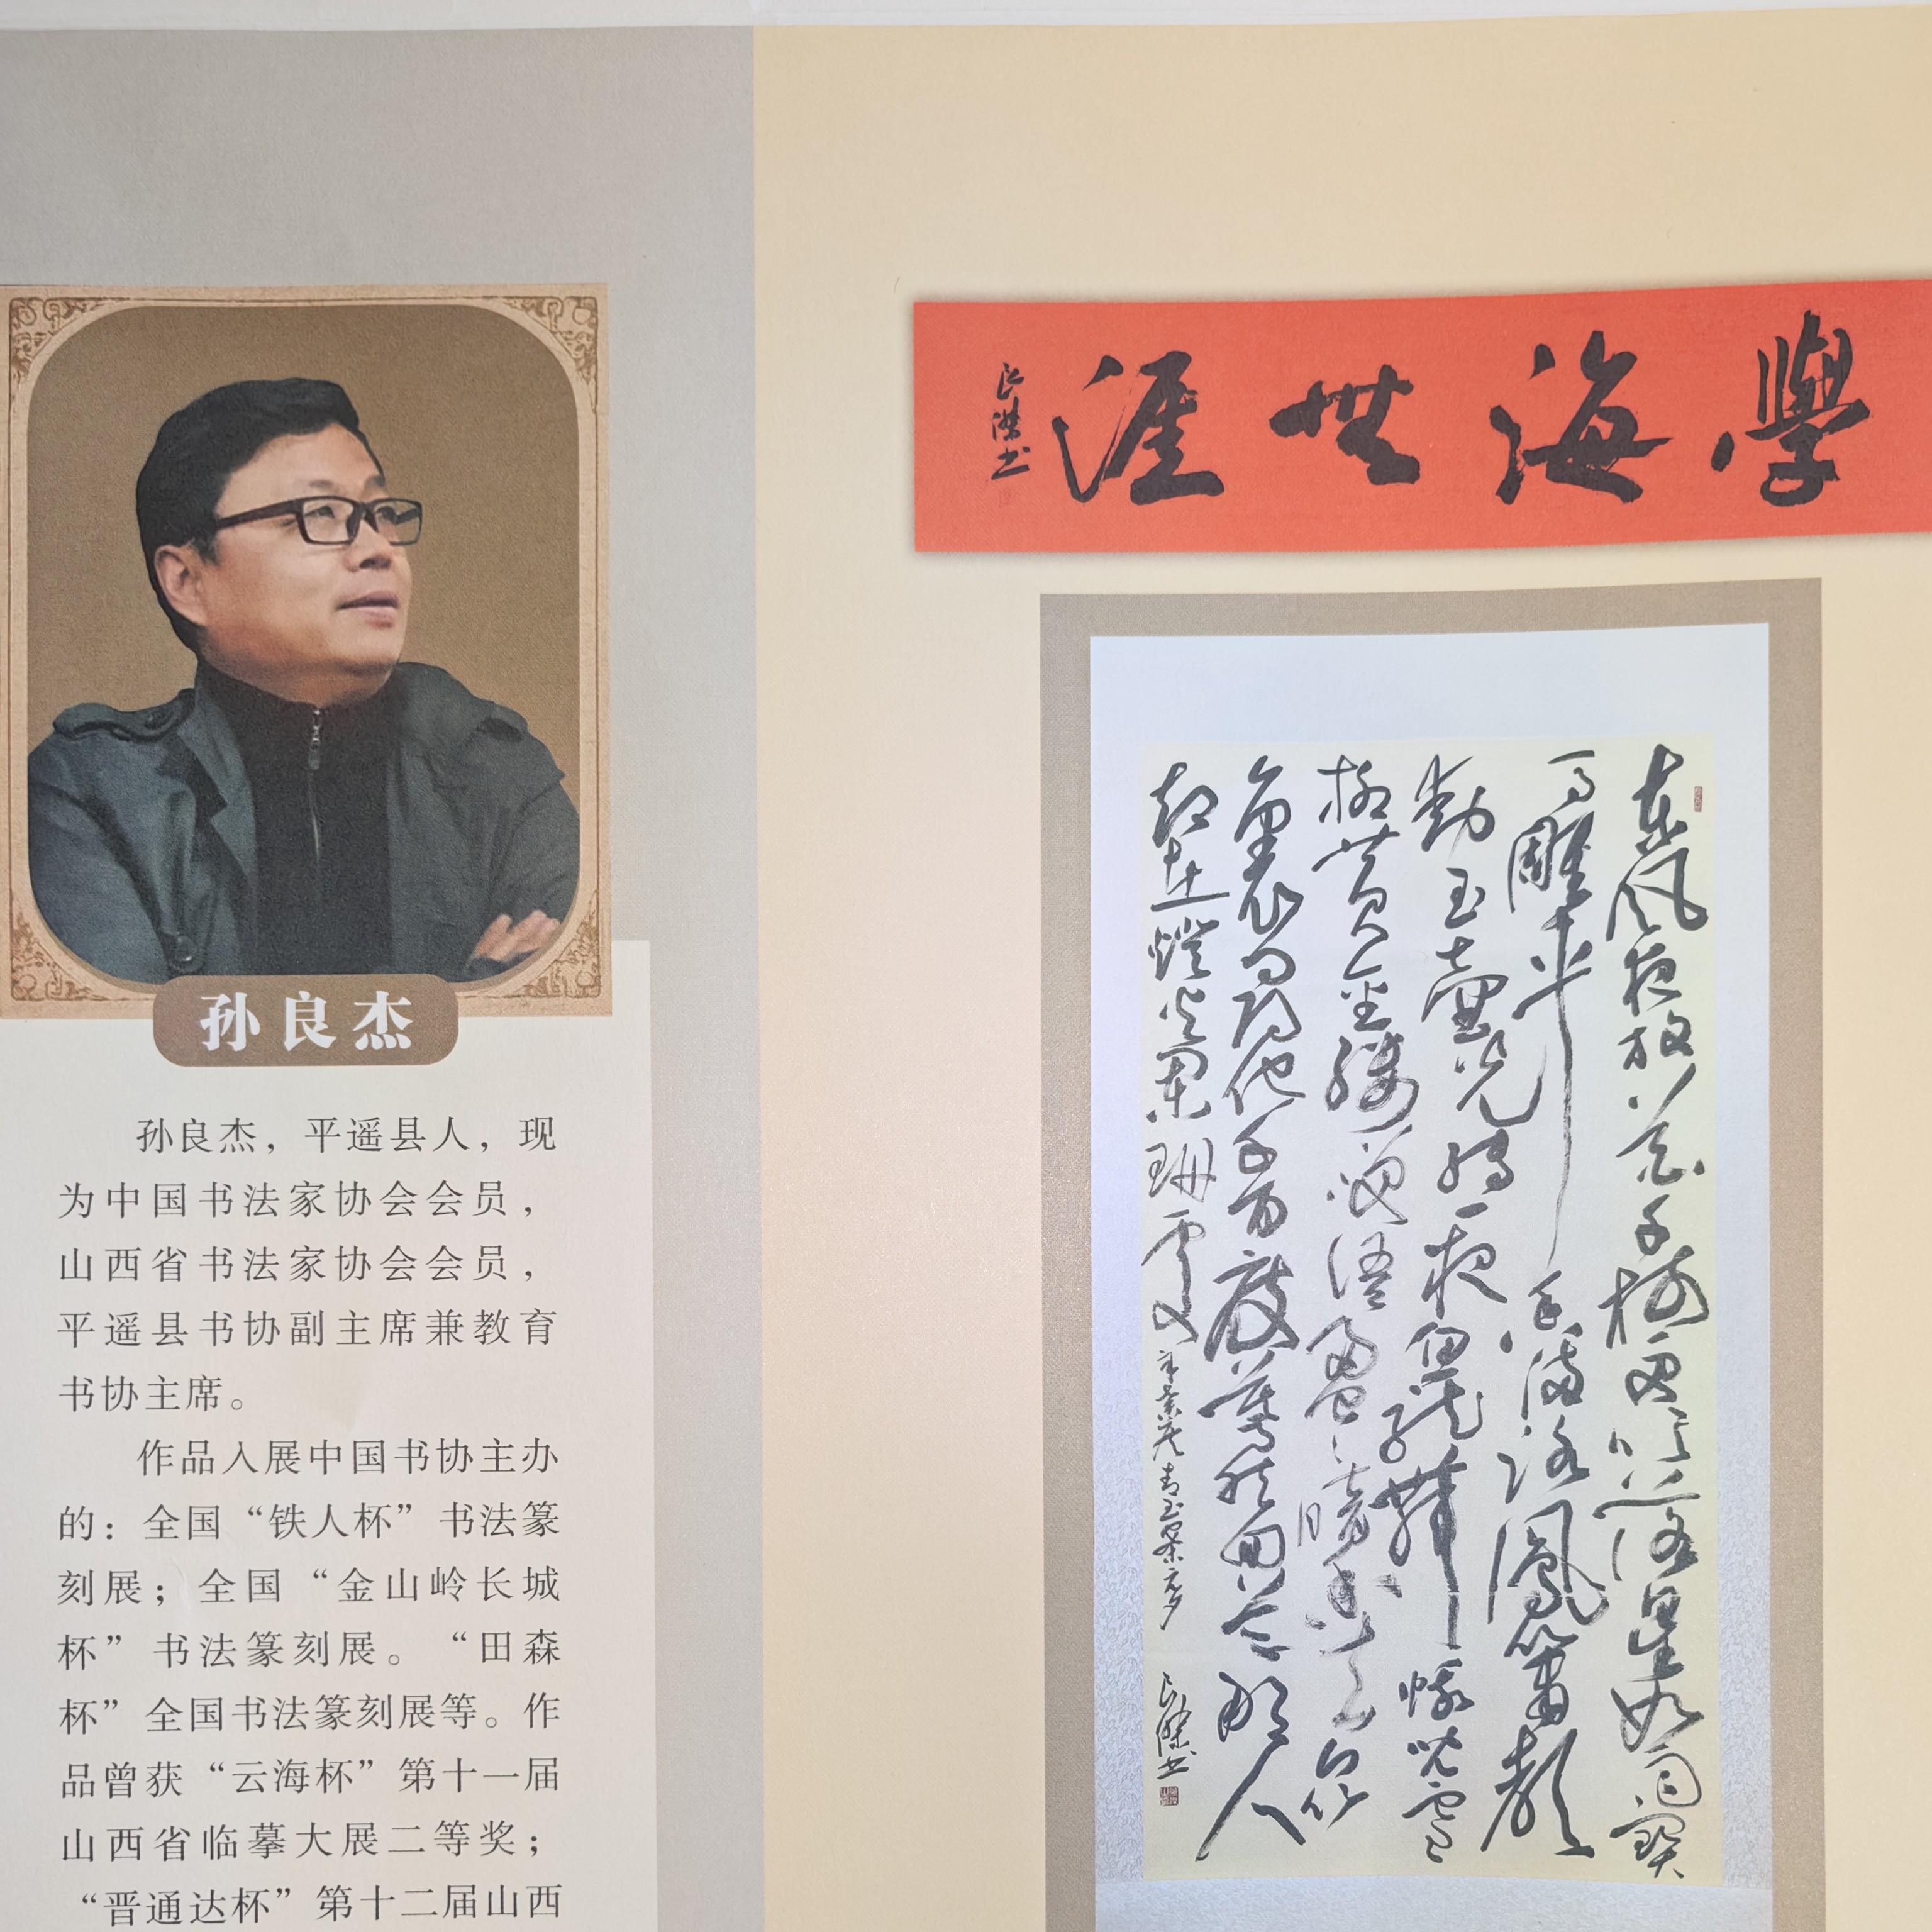 學海無涯
良傑書
孙良杰
孙良杰，平遥县人，现
为中国书法家协会会员，
山西省书法家协会会员，
平遥县书协副主席兼教育
书协主席。
作品入展中国书协主办
的：全国“铁人杯”书法篆
刻展；全国“金山岭长城
杯”书法篆刻展。“田森
杯”全国书法篆刻展等。作
品曾获“云海杯”第十一届
山西省临摹大展二等奖；
“晋通达杯”第十二届山西
東風夜放花千樹更吹落星如雨寶
馬雕車香滿路鳳簫聲
動玉壺光轉一夜魚龍舞蛾兒雪
柳黃金縷笑語盈盈暗香去
裏尋他千百度驀然回首那人
却在燈火闌珊處
辛棄疾青玉案元夕
良傑書